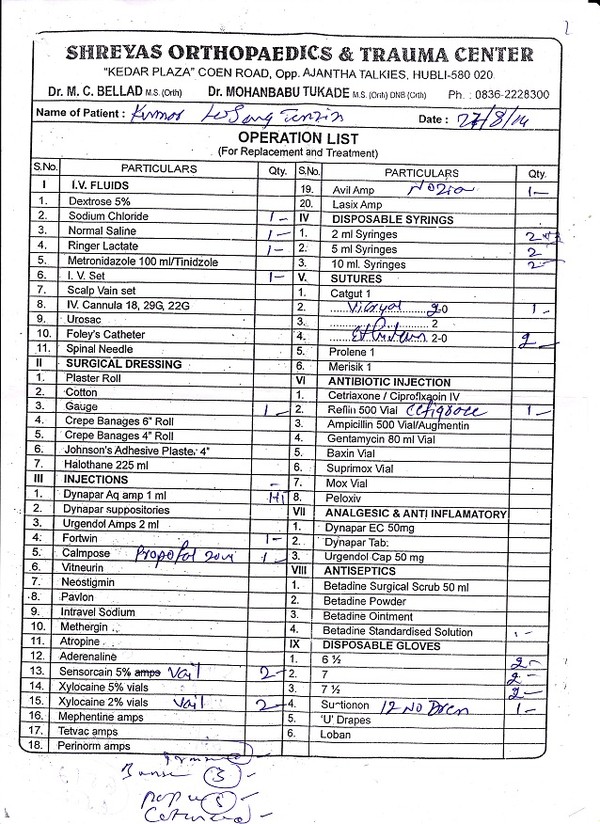 SHREYAS ORTHOPAEDICS & TRAUMA CENTER
"KEDAR PLAZA" COEN ROAD, Opp. AJANTHA TALKIES, HUBLI-580 020
Dr. M. C. BELLAD M.S. (Orth) Dr. MOHANBABU TUKADE M.S. (Orth) DNB (Orth) Ph. : 0836-2228300
Name of Patient : Tenzin Date : 27/8/14
OPERATION LIST
(For Replacement and Treatment)
S.No. PARTICULARS Qty.
I I.V. FLUIDS
1. Dextrose 5%
2. Sodium Chloride 1-
3. Normal Saline 1-
4. Ringer Lactate 1-
5. Metronidazole 100 ml/Tinidzole
6. I. V. Set 1-
7. Scalp Vain set
8. IV. Cannula 18, 29G, 22G
9. Urosac
10. Foley's Catheter
11. Spinal Needle
II SURGICAL DRESSING
1. Plaster Roll
2. Cotton
3. Gauge 1-
4. Crepe Banages 6" Roll
5. Crepe Banages 4" Roll
6. Johnson's Adhesive Plaster 4"
7. Halothane 225 ml
III INJECTIONS -
1. Dynapar Aq amp 1 ml
2. Dynapar suppositories
3. Urgendol Amps 2 ml
4. Fortwin 1-
5. Calmpose Propofol 20ml 1-
6. Vitneurin
7. Neostigmin
8. Pavlon
9. Intravel Sodium
10. Methergin
11. Atropine
12. Aderenaline
13. Sensorcain 5% amps Vail 2-
14. Xylocaine 5% vials
15. Xylocaine 2% vials Vail 2-
16. Mephentine amps
17. Tetvac amps
18. Perinorm amps
S.No. PARTICULARS Qty.
19. Avil Amp 1-
20. Lasix Amp
IV DISPOSABLE SYRINGS
1. 2 ml Syringes 2
2. 5 ml Syringes 2
3. 10 ml. Syringes 2-
V. SUTURES
1. Catgut 1
2. Vicryl 2-0 1-
3. 2
4. Ethilon 2-0 2-
5. Prolene 1
6. Merisik 1
VI ANTIBIOTIC INJECTION
1. Cetriaxone / Ciproflxaoin IV
2. Reflin 500 Vial 1-
3. Ampicillin 500 Vial/Augmentin
4. Gentamycin 80 ml Vial
5. Baxin Vial
6. Suprimox Vial
7. Mox Vial
8. Peloxiv
VII ANALGESIC & ANTI INFLAMATORY
1. Dynapar EC 50mg
2. Dynapar Tab:
3. Urgendol Cap 50 mg
VIII ANTISEPTICS
1. Betadine Surgical Scrub 50 ml
2. Betadine Powder
3. Betadine Ointment
4. Betadine Standardised Solution 1-
IX DISPOSABLE GLOVES
1. 6 ½ 2-
2. 7 2-
3. 7 ½ 2-
4. 12 NO 1-
5. 'U' Drapes
6. Loban